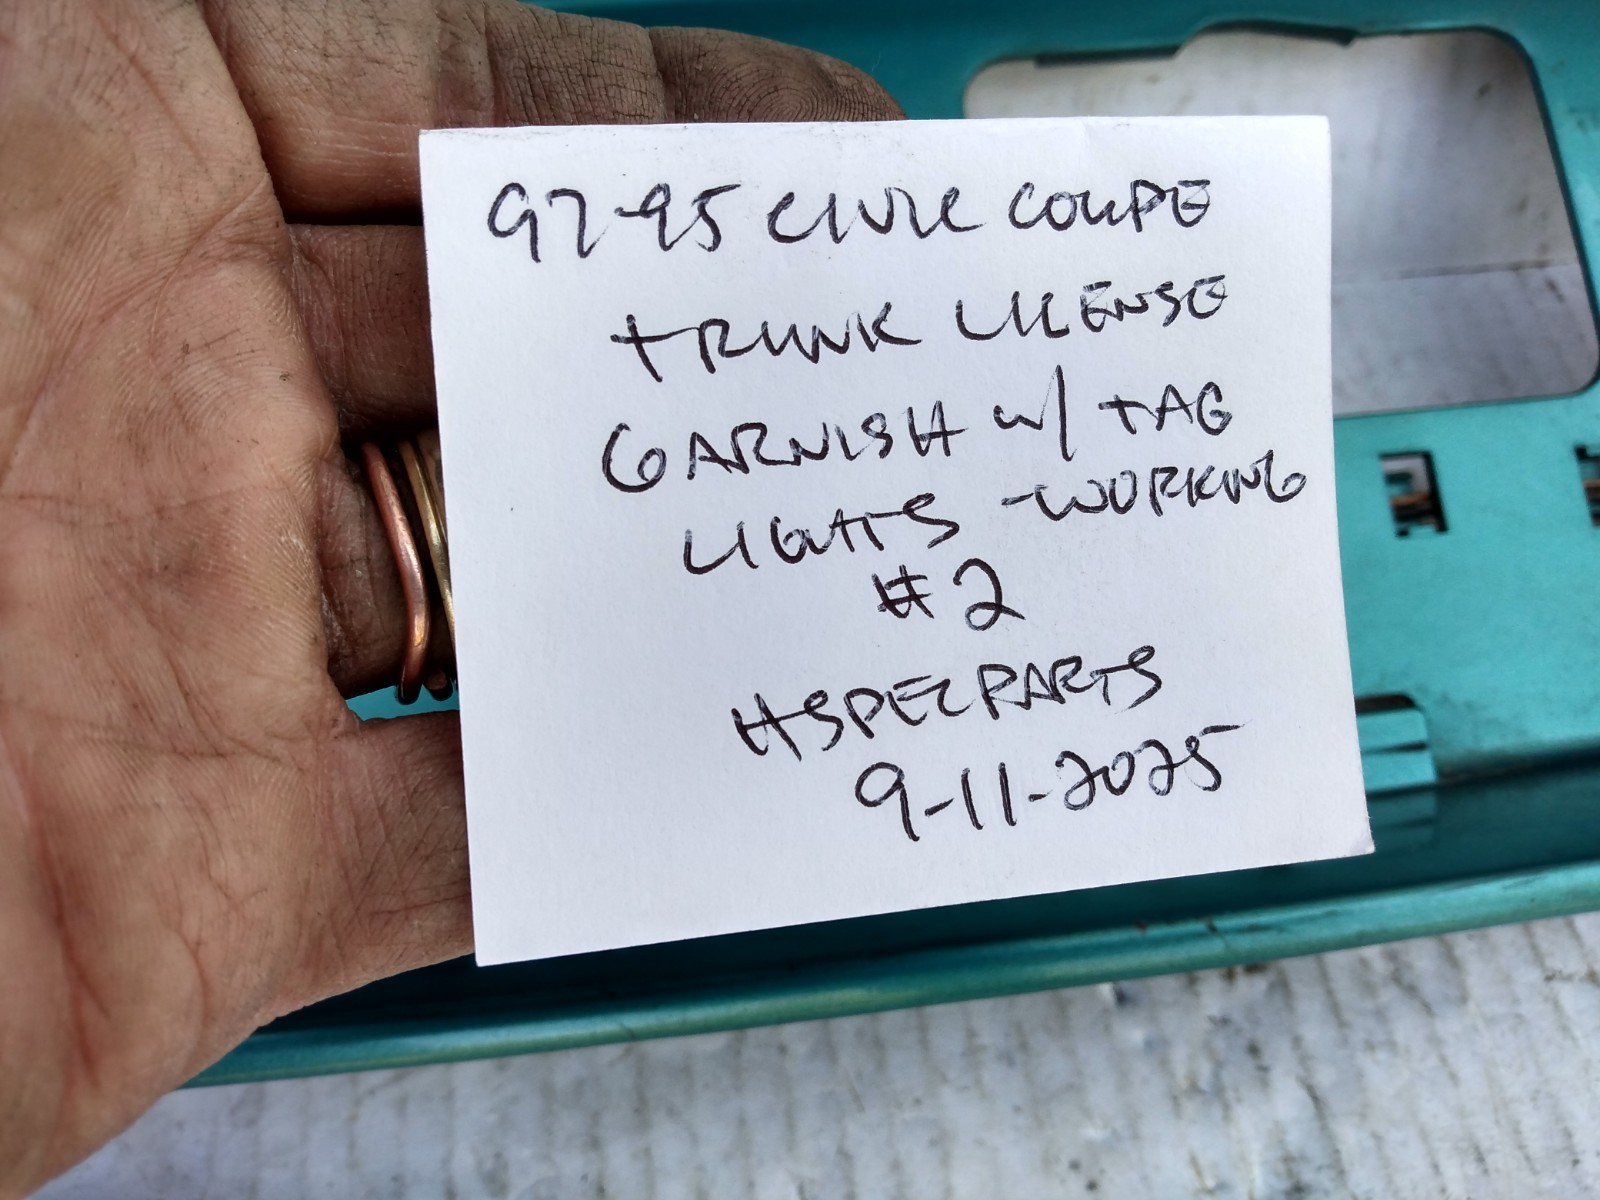 92-95 CIVIC COUPE
TRUNK LICENSE
GARNISH W/ TAG
LIGHTS - WORKING
#2
HSPECPARTS
9-11-2025